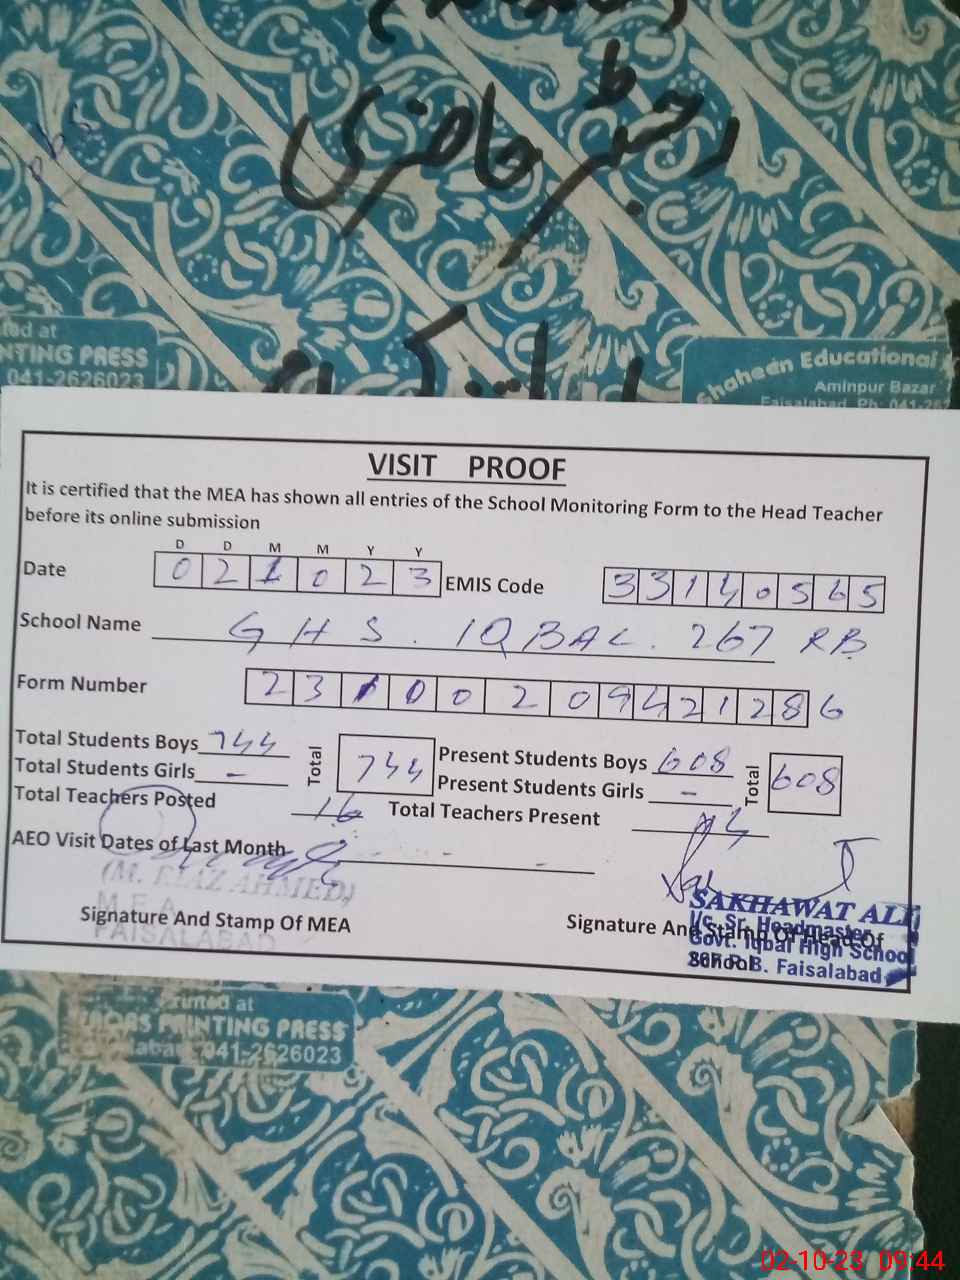 رجسٹر حاضری
nted at
NTING PRESS
041-2626023
Shaheen Educational
Aminpur Bazar
Faisalabad Ph: 041-262
VISIT PROOF
It is certified that the MEA has shown all entries of the School Monitoring Form to the Head Teacher
before its online submission
D D M M Y Y
Date 0 2 1 0 2 3 EMIS Code 3 3 1 4 0 5 6 5
School Name G H S . IQBAL . 267 RB
Form Number 2 3 1 0 0 2 0 9 4 2 1 2 8 6
Total Students Boys 744 Total 744 Present Students Boys 608 Total 608
Total Students Girls - Present Students Girls -
Total Teachers Posted 16 Total Teachers Present 14
AEO Visit Dates of Last Month
(M. RIAZ AHMED)
M E A
FAISALABAD
Signature And Stamp Of MEA
Signature And Stamp Of Head Of
School
SAKHAWAT ALI
I/c. Sr. Headmaster
Govt. Iqbal High School
267 R.B. Faisalabad
Printed at
PRINTING PRESS
041-2626023
02-10-23 09:44